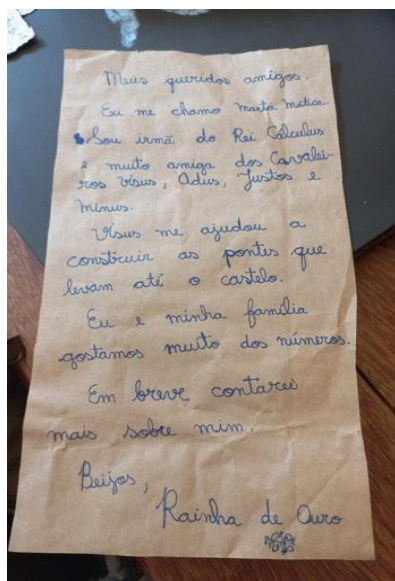 Meus queridos amigos.
Eu me chamo Marta mática.
Sou irmã do Rei Cálculus
e muito amiga dos Cavalei-
ros Vísus, Adus, Justos e
Minus.
Vísus me ajudou a
construir as pontes que
levam até o castelo.
Eu e minha família
gostamos muito dos números.
Em breve contarei
mais sobre mim.
Beijos,
Rainha de Ouro